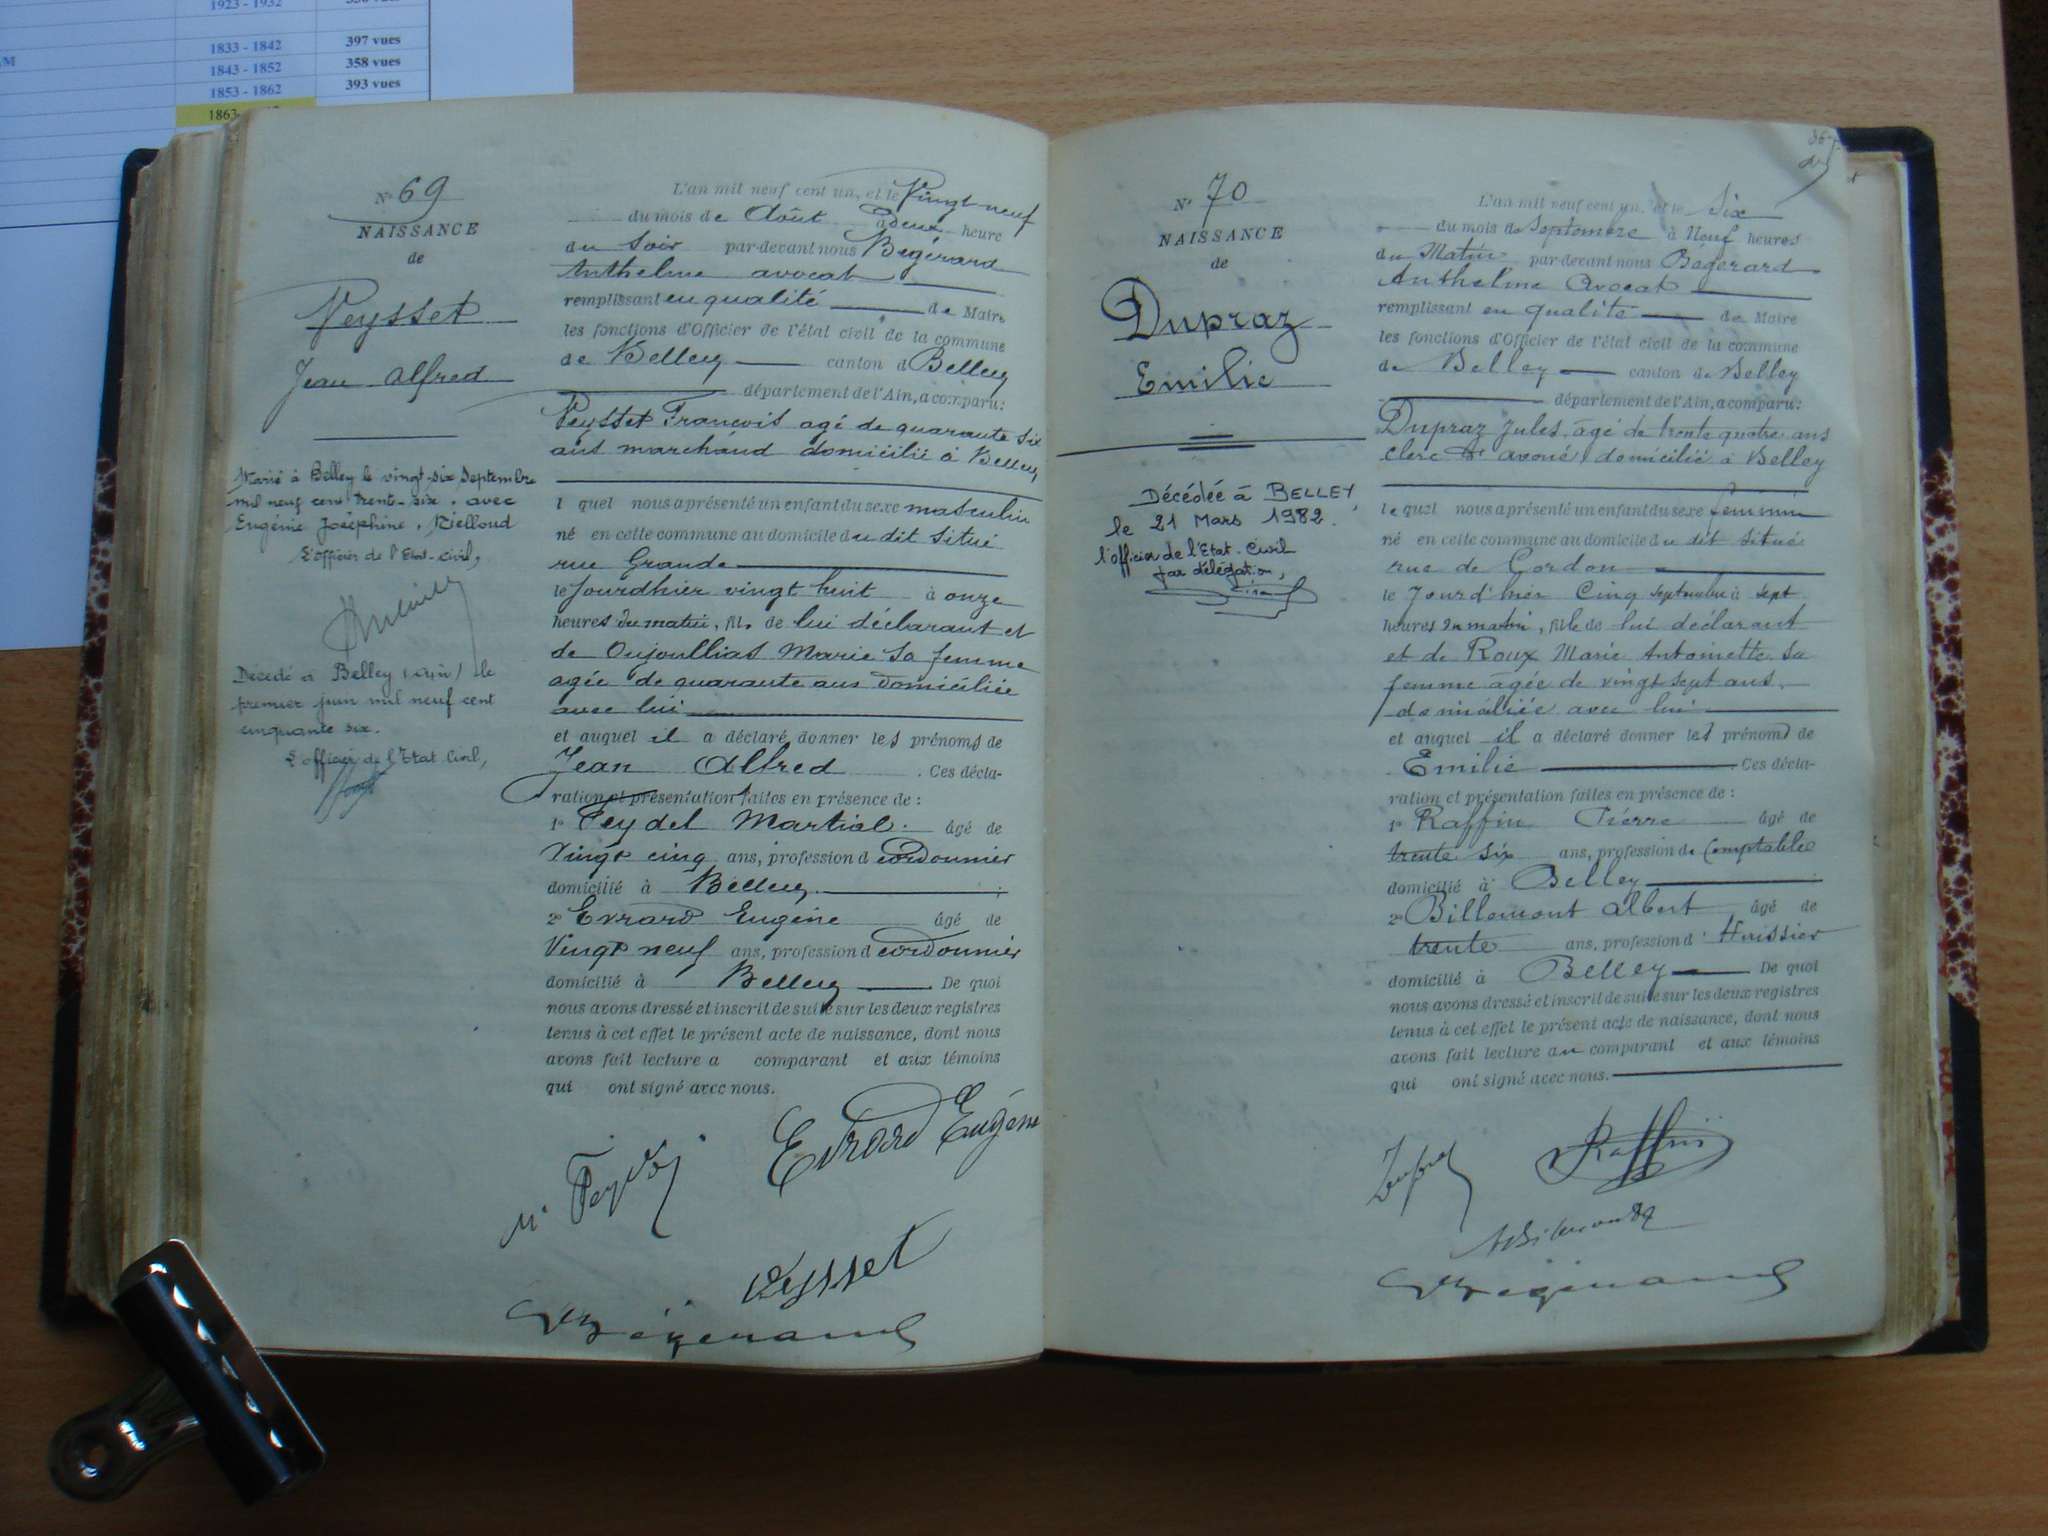 1923 - 1932
1833 - 1842 397 vues
1843 - 1852 358 vues
1853 - 1862 393 vues
1863
N° 69
NAISSANCE
de
Veysset
Jean Alfred
Marié à Belley le vingt-six Septembre
mil neuf cent trente-six, avec
Eugénie Joséphine, Rielloud
L'officier de l'Etat-Civil,
Décédé à Belley (Ain) le
premier juin mil neuf cent
cinquante six.
L'officier de l'Etat Civil,
L'an mil neuf cent un, et le Vingt neuf
du mois de Août à deux heure
du Soir par-devant nous Bégérard
Anthelme avocat
remplissant en qualité de Maire
les fonctions d'Officier de l'état civil de la commune
de Belley canton d Belley
département de l'Ain, a comparu:
Veysset François agé de quarante six
ans marchand domicilié à Belley
l quel nous a présenté un enfant du sexe masculin
né en cette commune au domicile du dit situé
rue Grande
le Jourdhier vingt huit à onze
heures du matin, fils de lui déclarant et
de Oujoullias Marie sa femme
agée de quarante ans domiciliée
avec lui
et auquel il a déclaré donner les prénoms de
Jean Alfred. Ces décla-
ration et présentation faites en présence de :
1° Peydel Martial. âgé de
Vingt cinq ans, profession d cordonnier
domicilié à Belley ;
2° Evrard Eugéne âgé de
Vingt neuf ans, profession d cordonnier
domicilié à Belley De quoi
nous avons dressé et inscrit de suite sur les deux registres
tenus à cet effet le présent acte de naissance, dont nous
avons fait lecture a comparant et aux témoins
qui ont signé avec nous.
Evrard Eugéne
Veysset
Bégérard
N° 70
NAISSANCE
de
Dupraz
Emilie
Décédée à BELLEY,
le 21 Mars 1982.
l'officier de l'Etat-Civil
par délégation,
L'an mil neuf cent un, et le Six
du mois de Septembre à Neuf heures
du Matin par-devant nous Bégérard
Anthelme Avocat
remplissant en qualité de Maire
les fonctions d'Officier de l'état civil de la commune
de Belley canton de Belley
département de l'Ain, a comparu:
Dupraz Jules, âgé de trente quatre ans
clerc d' avoué, domicilié à Belley
le quel nous a présenté un enfant du sexe féminin
né en cette commune au domicile du dit situé
rue de Gordon
le Jour d'hier Cinq septembre à sept
heures du matin, fille de lui déclarant
et de Roux Marie Antoinette sa
femme âgée de vingt sept ans,
domiciliée avec lui
et auquel il a déclaré donner les prénoms de
Emilie. Ces décla-
ration et présentation faites en présence de :
1° Raffin Pierre âgé de
trente six ans, profession de Comptable
domicilié à Belley ;
2° Billemont Albert âgé de
trente ans, profession d' Huissier
domicilié à Belley De quoi
nous avons dressé et inscrit de suite sur les deux registres
tenus à cet effet le présent acte de naissance, dont nous
avons fait lecture au comparant et aux témoins
qui ont signé avec nous.
Raffin
Bégérard